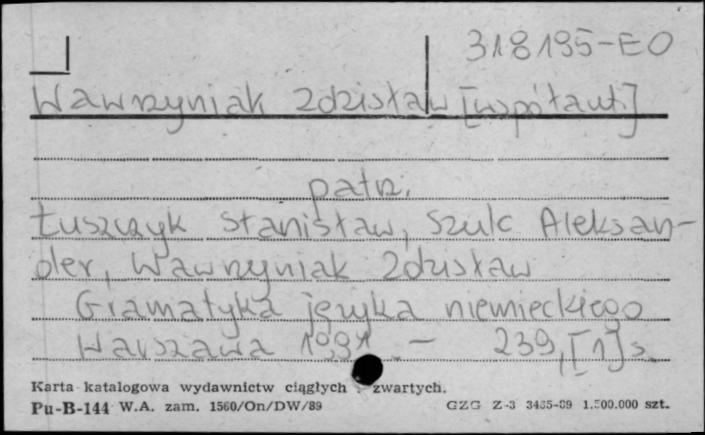 318195-EO
Wawrzyniak Zdzisław [współaut.]
patrz.
Łuszczyk Stanisław, Szulc Aleksan-
der, Wawrzyniak Zdzisław
Gramatyka języka niemieckiego
Warszawa 1991 - 239, [1] s.
Karta katalogowa wydawnictw ciągłych zwartych.
Pu-B-144 W.A. zam. 1560/On/DW/89 GZG Z-3 3435-89 1.500.000 szt.